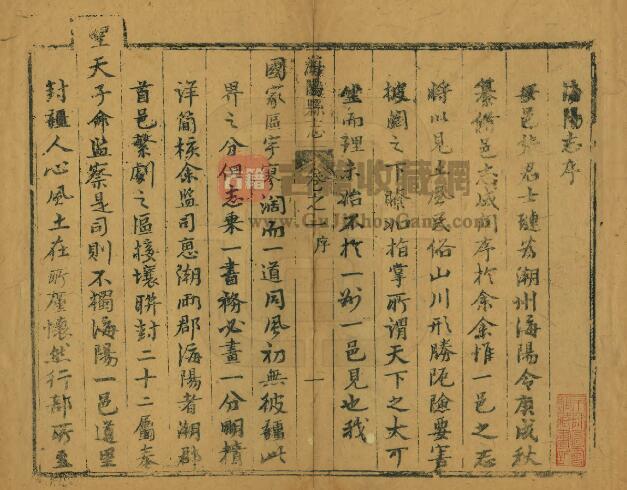 海陽志序
邑
士璉為潮州海陽令庚戌秋
纂修邑志成問序於余余惟一邑之志
將以見土風民俗山川形勝阨險要害
披圖之下瞭如指掌所謂天下之大可
坐而理未始不於一邑見也我
海陽縣志
卷之一 序
一
國家區宇寥濶而一道同風初無彼疆此
界之分但志乘一書務必畫一分明積
詳簡核余監司惠潮兩郡海陽者潮郡
首邑繁劇之區接壤聨封二十二屬奉
聖天子命監察是司則不獨海陽一邑道里
封疆人心風土在所廑懷然行部所至
古籍收藏網
www.GuJiShopCang.com
古籍